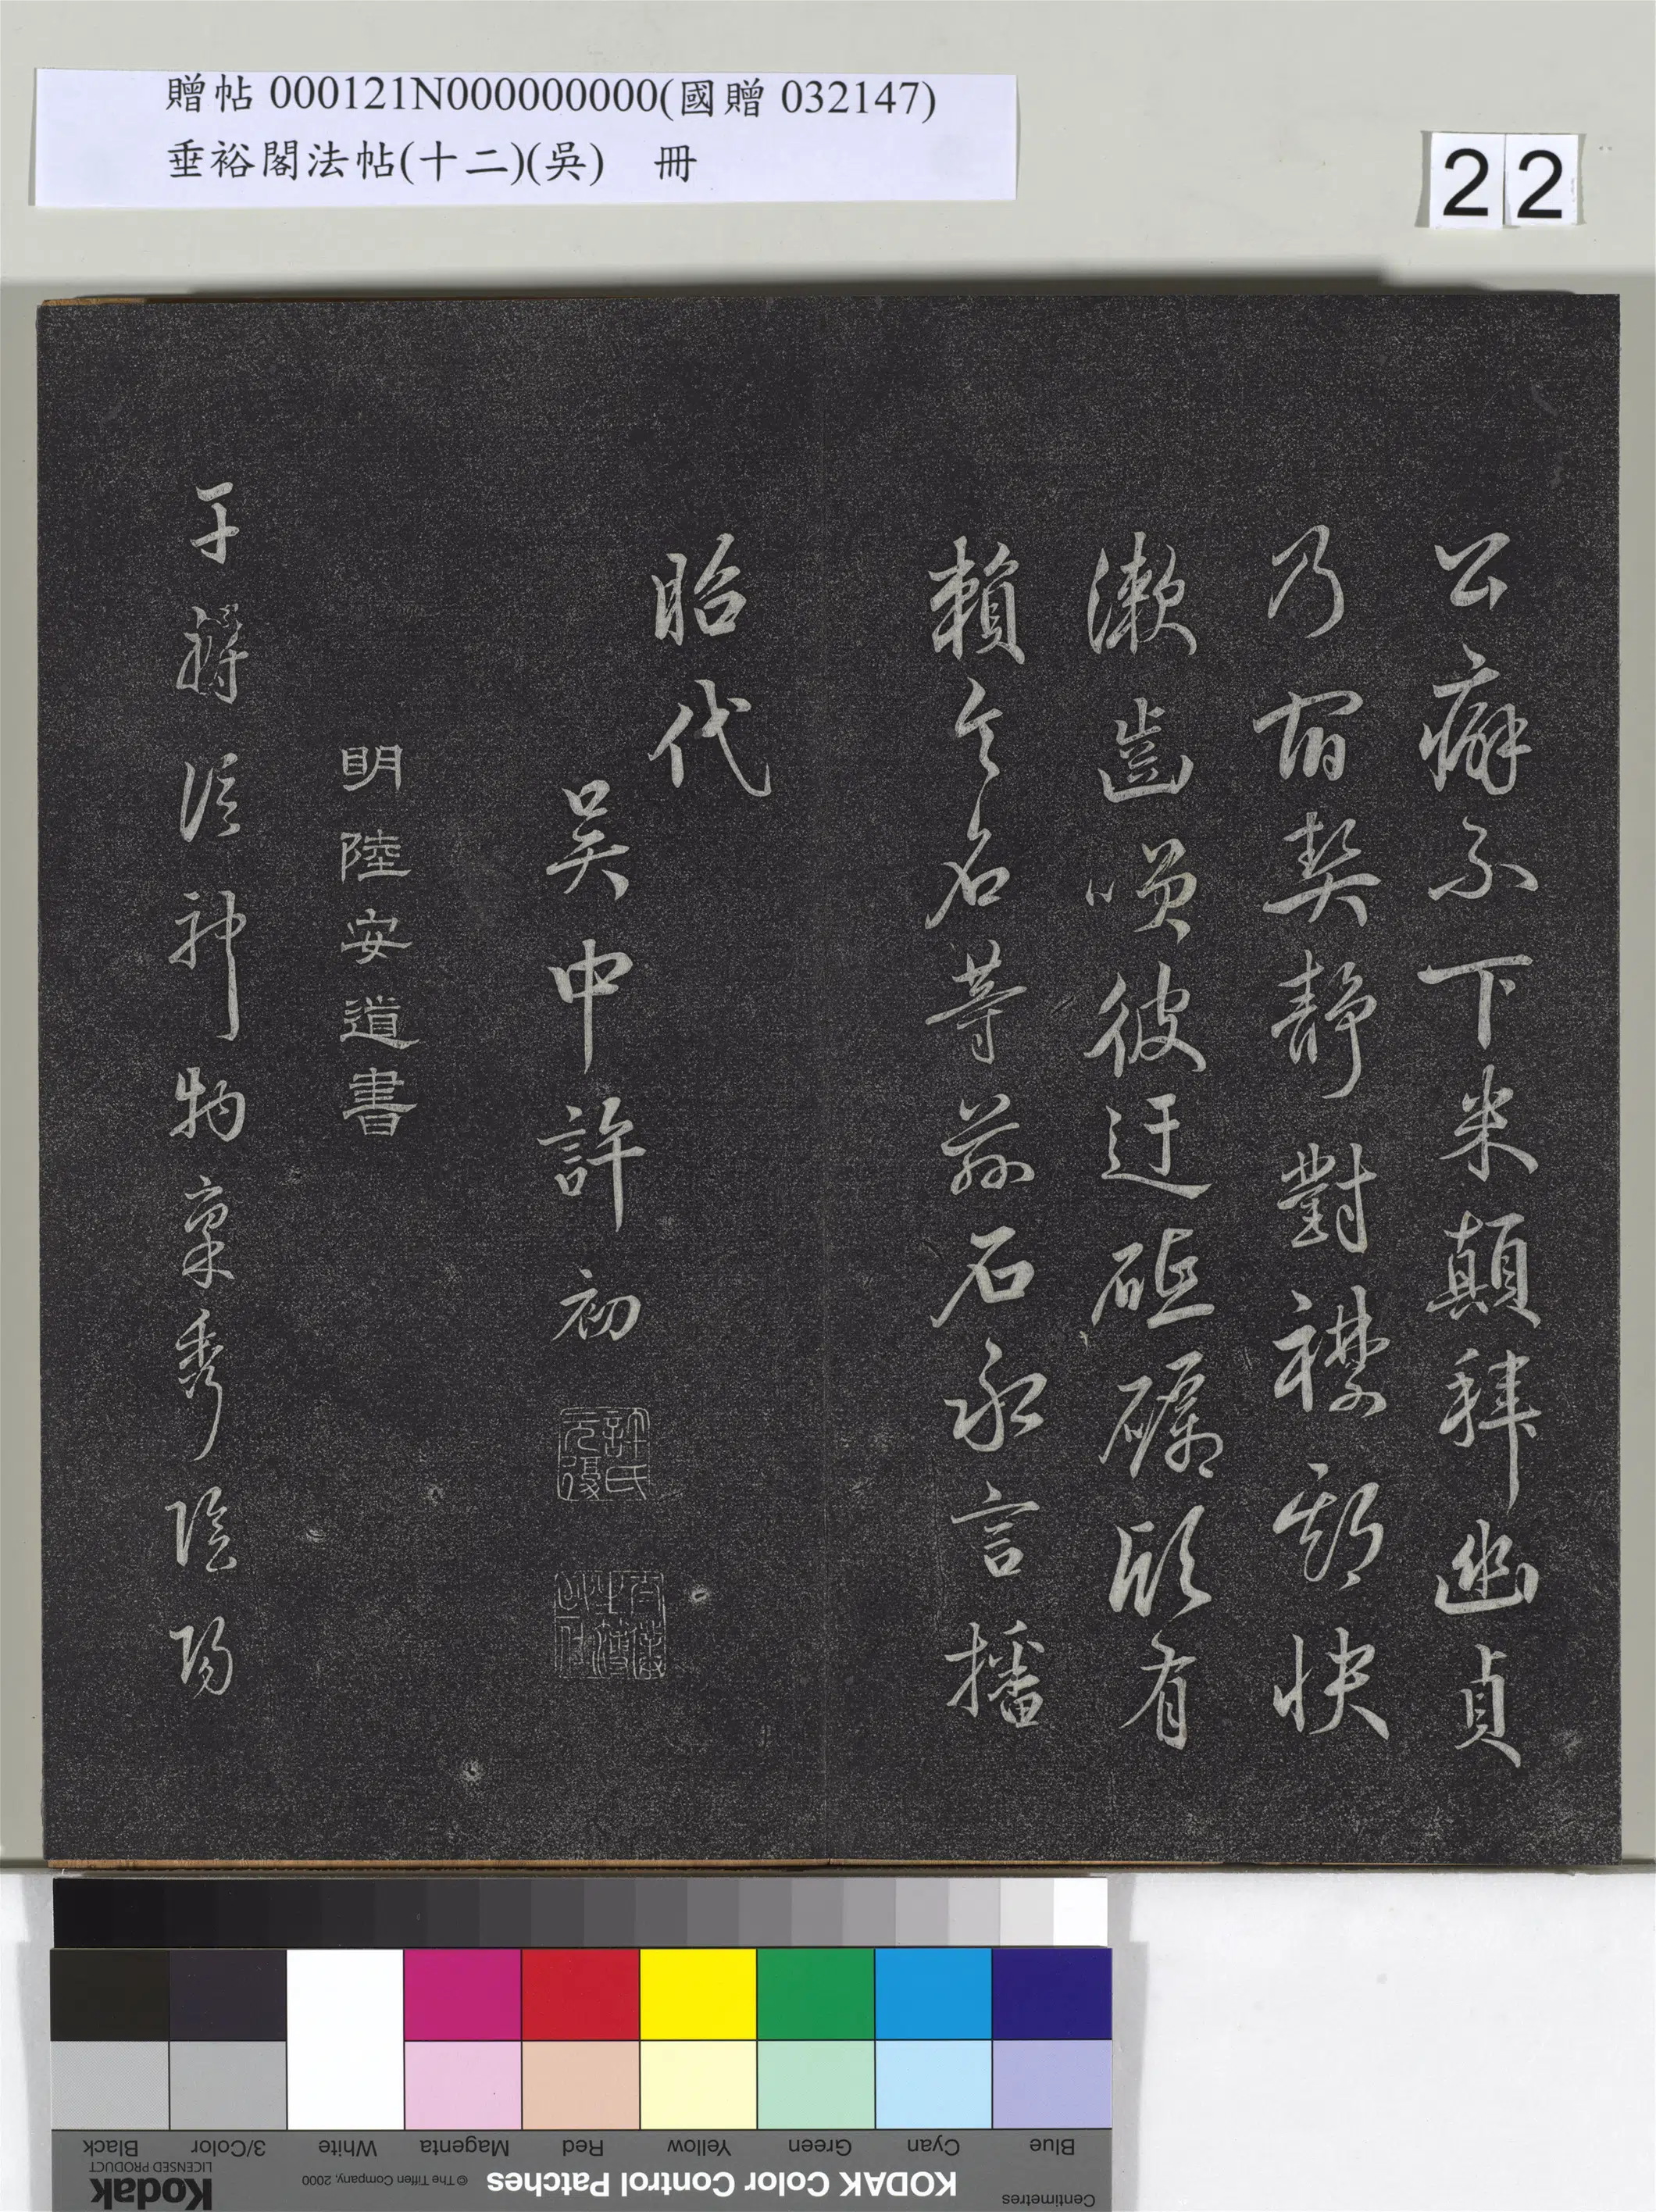 贈帖 000121N000000000(國贈 032147)
垂裕閣法帖(十二)(吳) 冊
22
公癖不下米顛拜幽貞
乃宿契靜對襟期快
漱齒嘆彼迂砥礪欣有
賴令名等茲石永言播
昭代
吳中許初
許氏元復
明陸安道書
物稟秀陰陽
Blue
Cyan
Green
Yellow
Red
Magenta
White
3/Color
Black
KODAK Color Control Patches
© The Tiffen Company, 2000
Kodak
LICENSED PRODUCT
Centimetres